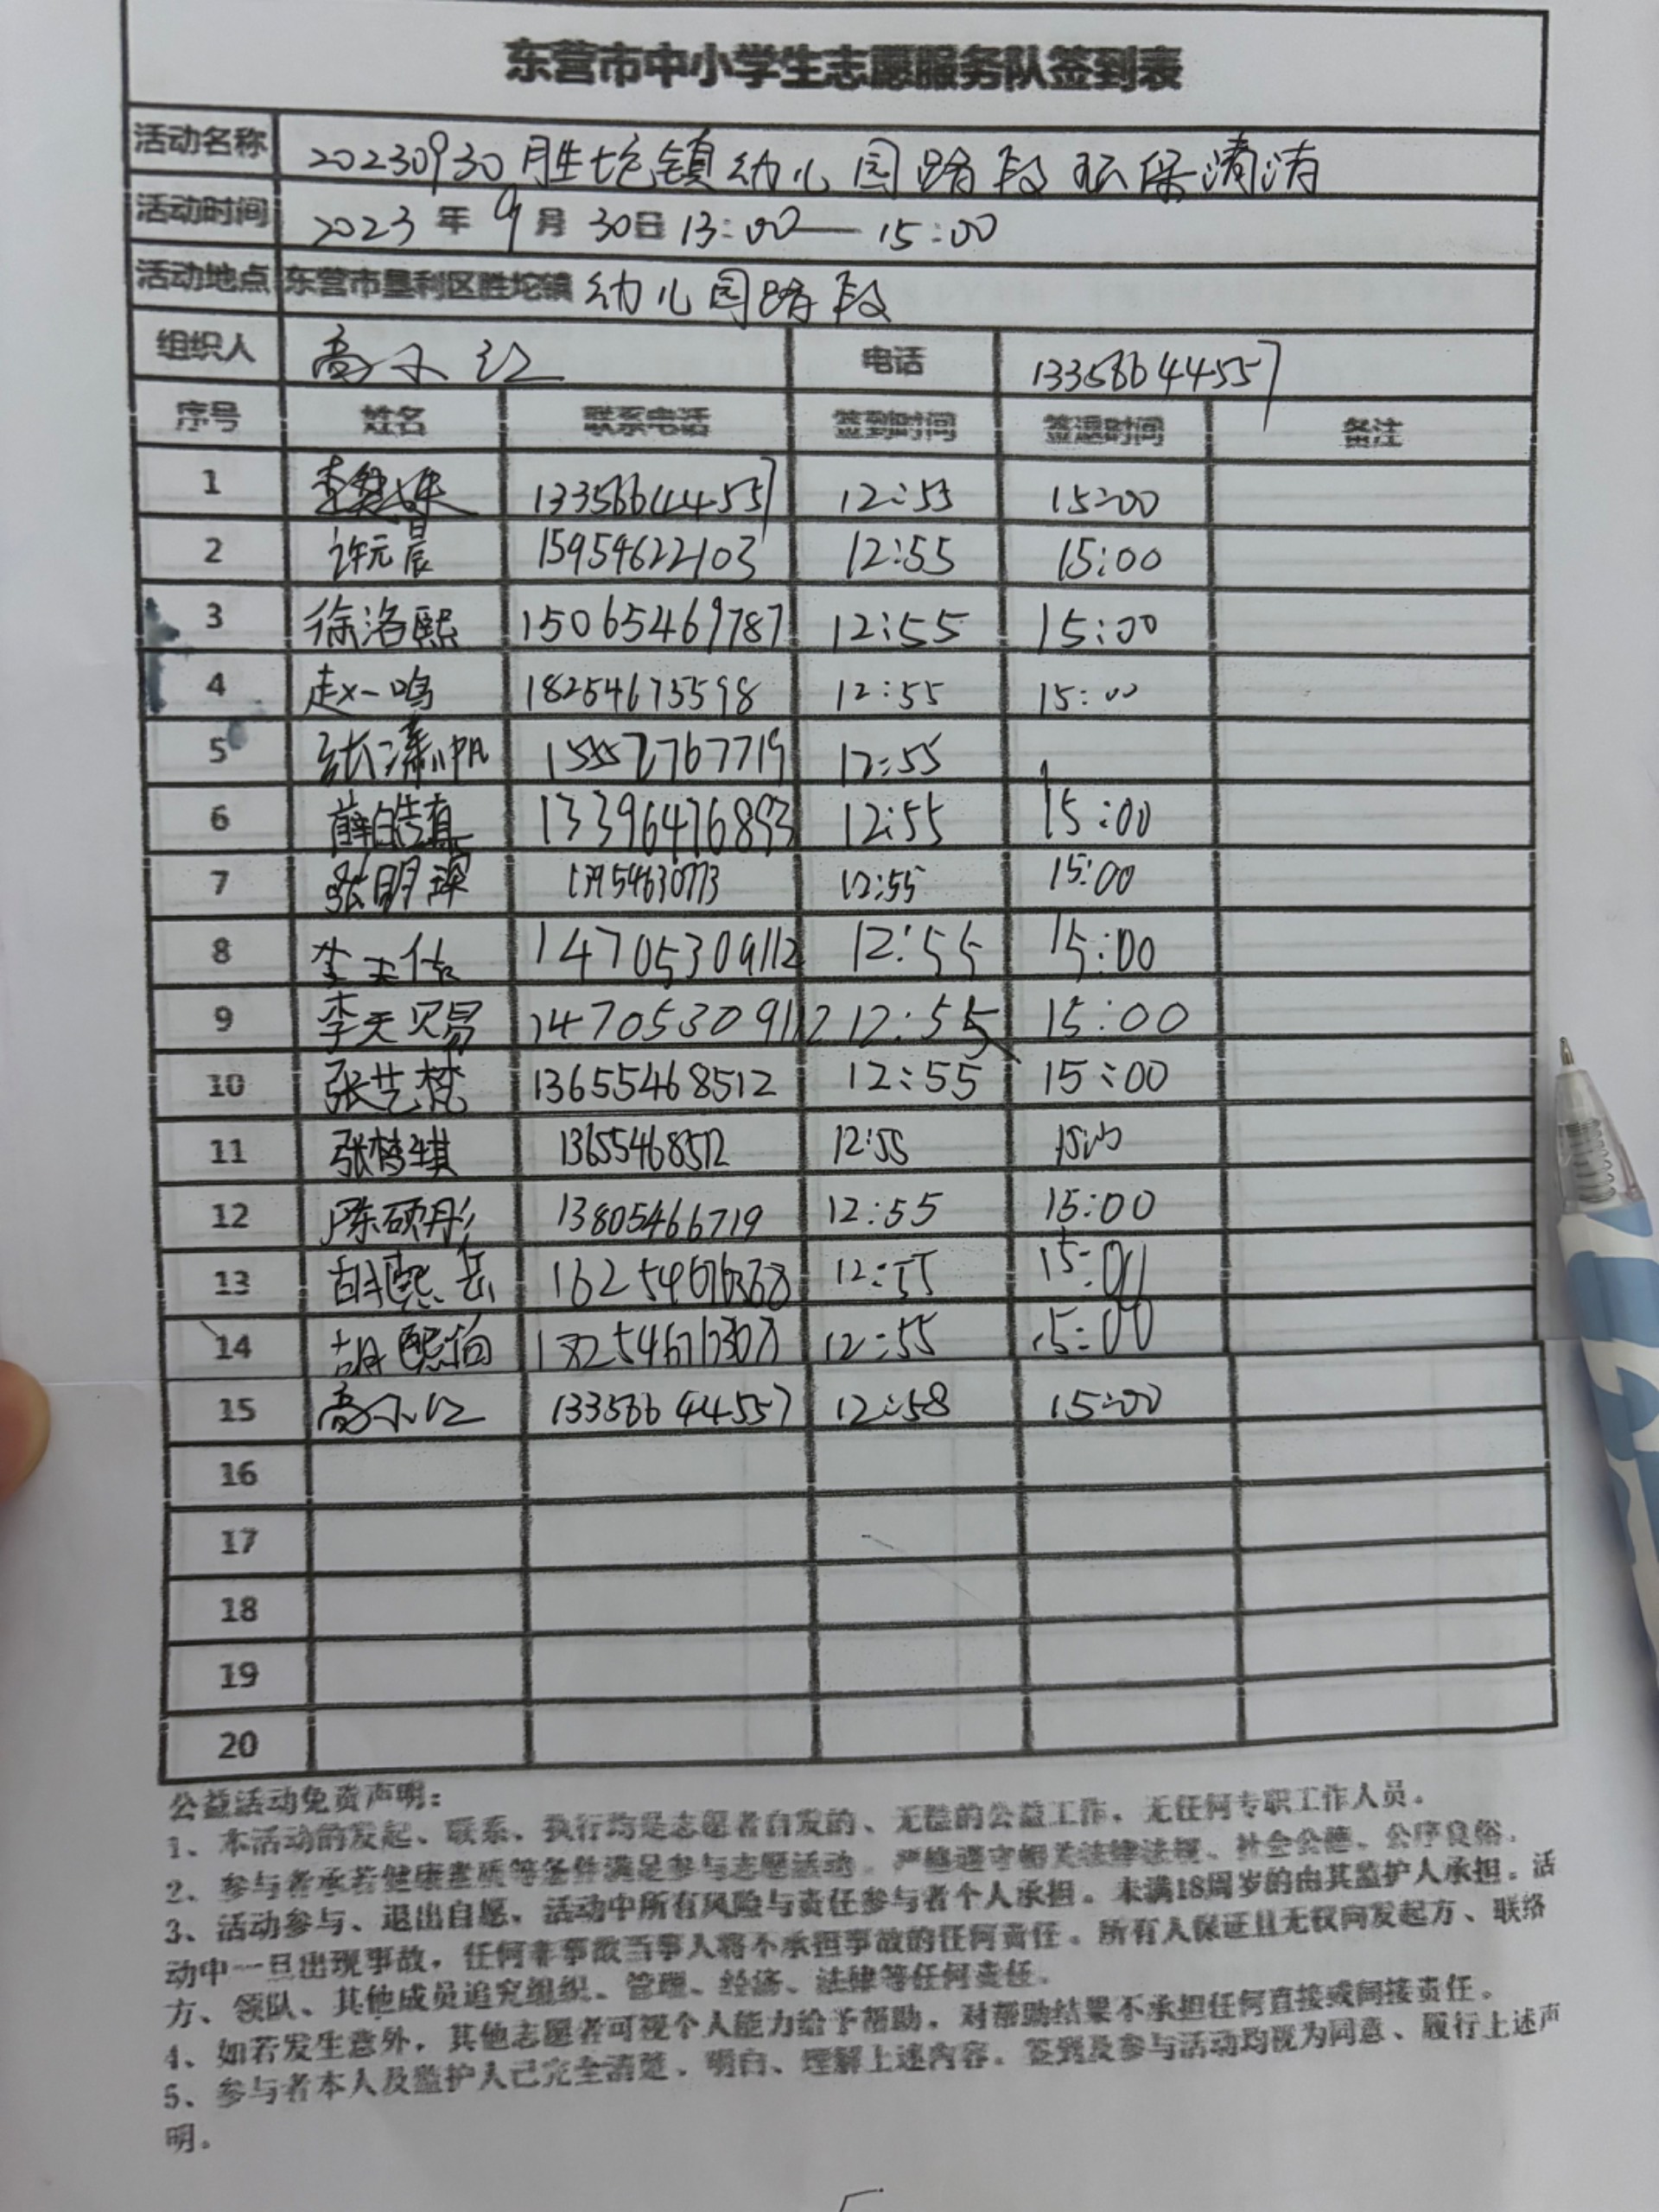 东营市中小学生志愿服务队签到表
活动名称 20230930胜坨镇幼儿园路段环保清洁
活动时间 2023年9月30日13:00—15:00
活动地点 东营市垦利区胜坨镇幼儿园路段
组织人 高小红 电话 13356644557
序号 姓名 联系电话 签到时间 签退时间 备注
1 13356644557 12:55 15:00
2 许元晨 15954622103 12:55 15:00
3 徐洛熙 15065469787 12:55 15:00
4 赵一鸣 18254673598 12:55 15:00
5 15552767719 12:55
6 薛皓真 13396476893 12:55 15:00
7 张明泽 13954630773 12:55 15:00
8 李天佑 14705309112 12:55 15:00
9 李天赐 14705309112 12:55 15:00
10 张艺梵 13655468512 12:55 15:00
11 张梦琪 13655468512 12:55 15:00
12 陈硕彤 13805466719 12:55 15:00
13 胡熙岳 12:55 15:00
14 胡熙伯 12:55 15:00
15 高小红 13356644557 12:58 15:00
16
17
18
19
20
公益活动免责声明：
1、本活动的发起、联系、执行均是志愿者自发的、无偿的公益工作，无任何专职工作人员。
2、参与者承若健康素质等条件满足参与志愿活动，严格遵守相关法律法规、社会公德、公序良俗。
3、活动参与、退出自愿，活动中所有风险与责任参与者个人承担。未满18周岁的由其监护人承担。活
动中一旦出现事故，任何非事故当事人将不承担事故的任何责任。所有人保证且无权向发起方、联络
方、领队、其他成员追究组织、管理、经济、法律等任何责任。
4、如若发生意外，其他志愿者可视个人能力给予帮助，对帮助结果不承担任何直接或间接责任。
5、参与者本人及监护人已完全清楚、明白、理解上述内容，签到及参与活动均视为同意、履行上述声
明。